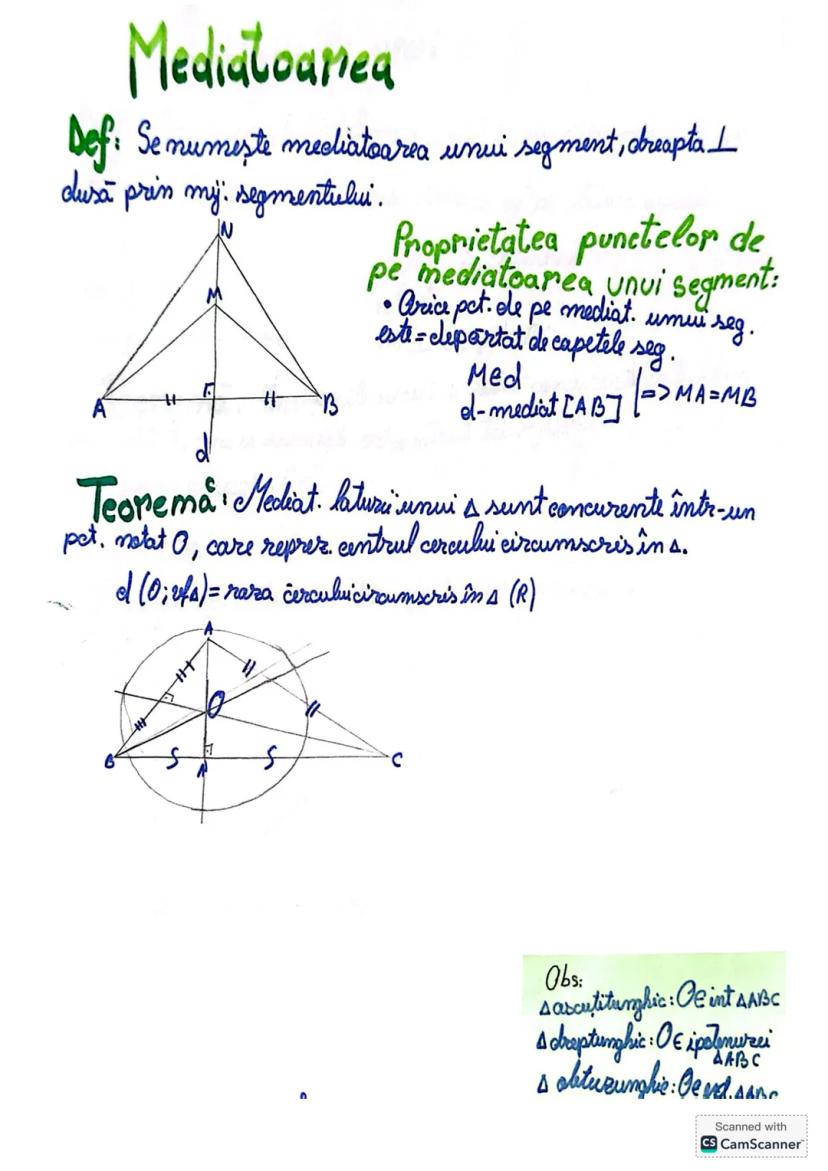 Mediatoarea
Def: Se numește mediatoarea unui segment, dreapta ⊥
dusă prin mij. segmentului.
N
M
A
B
d
Proprietatea punctelor de
pe mediatoarea unui segment:
• Orice pct. de pe mediat. unui seg.
este = depărtat de capetele seg.
M∈d
d-mediat [AB] | => MA=MB
Teoremă: Mediat. laturii unui Δ sunt concurente într-un
pct. notat O, care reprez. centrul cercului circumscris în Δ.
d (O; vf Δ) = raza cercului circumscris în Δ (R)
A
O
B
A'
C
Obs:
Δ ascuțitunghic: O∈ int ΔABC
Δ dreptunghic: O∈ ipotenuzei
ΔABC
Δ obtuzunghic: O∈ ext. ΔABC
Scanned with
CS CamScanner